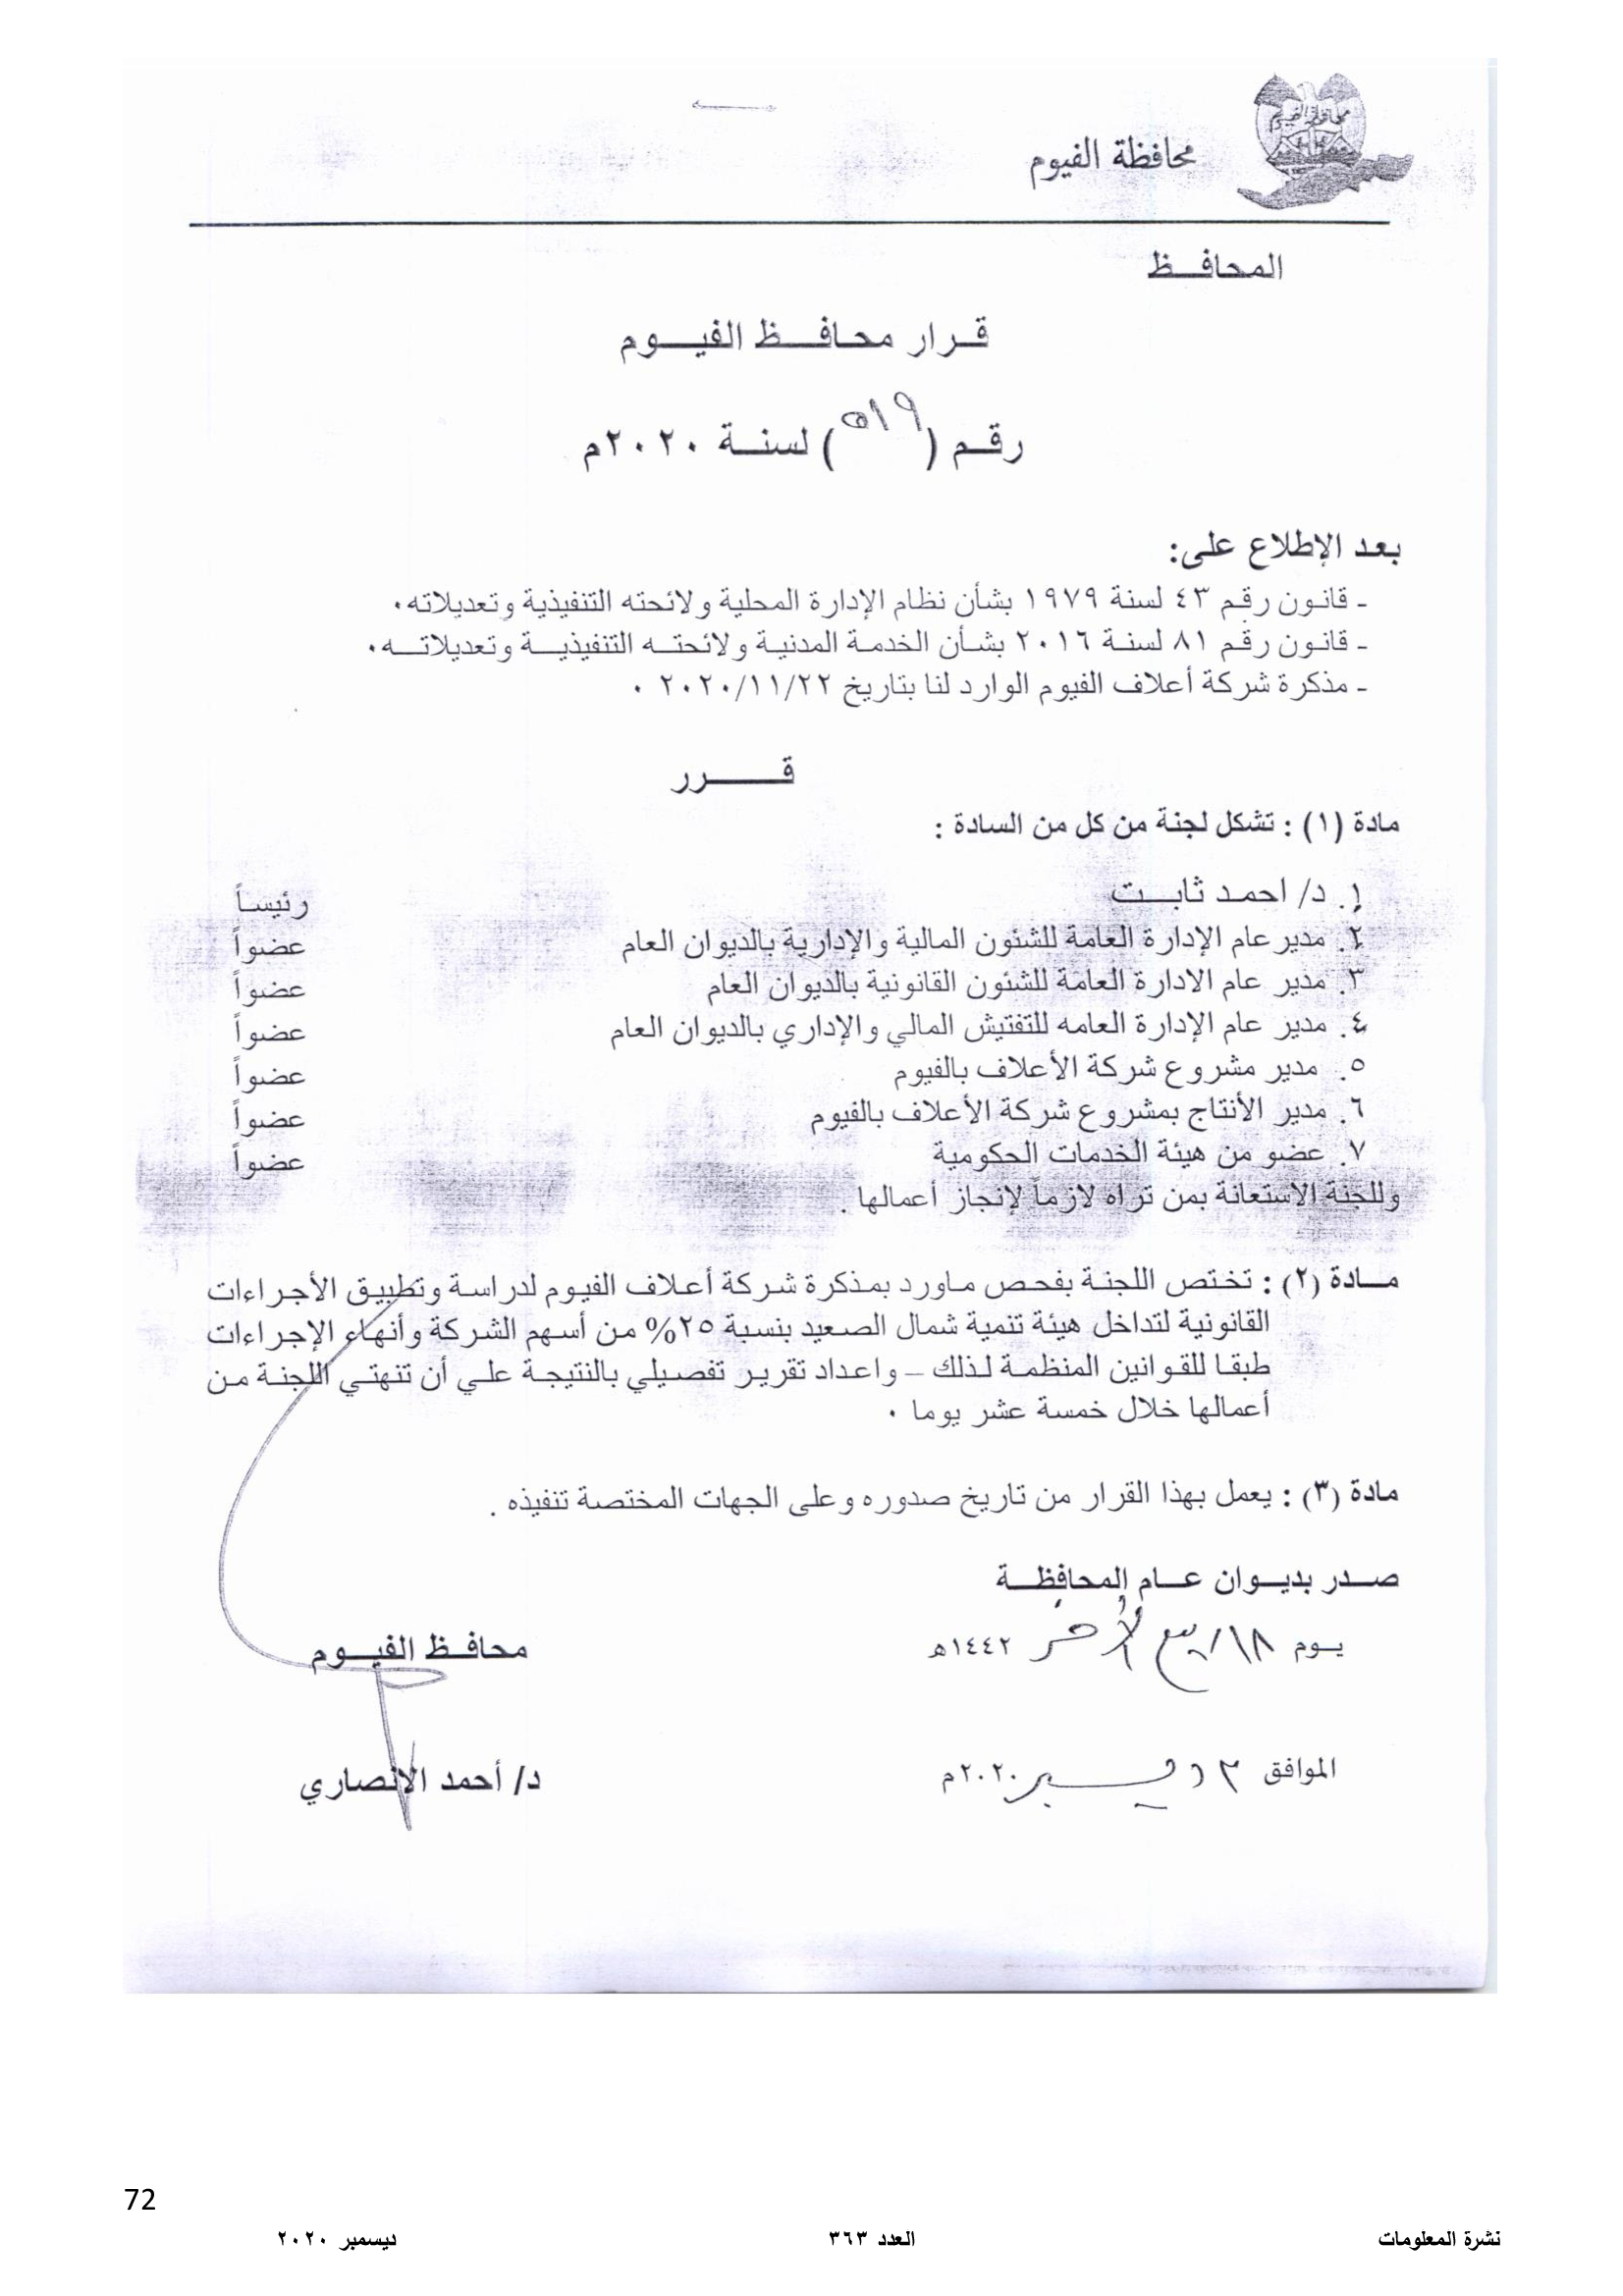 محافظة الفيوم
محافظة الفيوم
المحافـــظ
قـرار محافـــظ الفيـــوم
رقم (٥١٩) لسنة ٢٠٢٠م
بعد الإطلاع على:
- قانون رقم ٤٣ لسنة ١٩٧٩ بشأن نظام الإدارة المحلية ولائحته التنفيذية وتعديلاته.
- قانون رقم ٨١ لسنة ٢٠١٦ بشأن الخدمة المدنية ولائحته التنفيذية وتعديلاته.
- مذكرة شركة أعلاف الفيوم الوارد لنا بتاريخ ٢٠٢٠/١١/٢٢ .
قــــــرر
مادة (١) : تشكل لجنة من كل من السادة :
١. د/ احمد ثابـــت رئيساً
٢. مدير عام الإدارة العامة للشئون المالية والإدارية بالديوان العام عضواً
٣. مدير عام الادارة العامة للشئون القانونية بالديوان العام عضواً
٤. مدير عام الإدارة العامه للتفتيش المالي والإداري بالديوان العام عضواً
٥. مدير مشروع شركة الأعلاف بالفيوم عضواً
٦. مدير الأنتاج بمشروع شركة الأعلاف بالفيوم عضواً
٧. عضو من هيئة الخدمات الحكومية عضواً
وللجنة الاستعانة بمن تراه لازماً لإنجاز أعمالها .
مـــادة (٢) : تختص اللجنة بفحص ماورد بمذكرة شركة أعلاف الفيوم لدراسة وتطبيق الأجراءات
القانونية لتداخل هيئة تنمية شمال الصعيد بنسبة ٢٥% من أسهم الشركة وأنهاء الإجراءات
طبقا للقوانين المنظمة لذلك – واعداد تقرير تفصيلي بالنتيجة علي أن تنهتي اللجنة من
أعمالها خلال خمسة عشر يوما .
مادة (٣) : يعمل بهذا القرار من تاريخ صدوره وعلى الجهات المختصة تنفيذه .
صــدر بديــوان عــام المحافظــة
يـوم ١٨ ربيع الآخر ١٤٤٢هـ
محافــظ الفيــوم
الموافق ٣ ديسمبر ٢٠٢٠م
د/ أحمد الانصاري
72
نشرة المعلومات العدد ٣٦٣ ديسمبر ٢٠٢٠